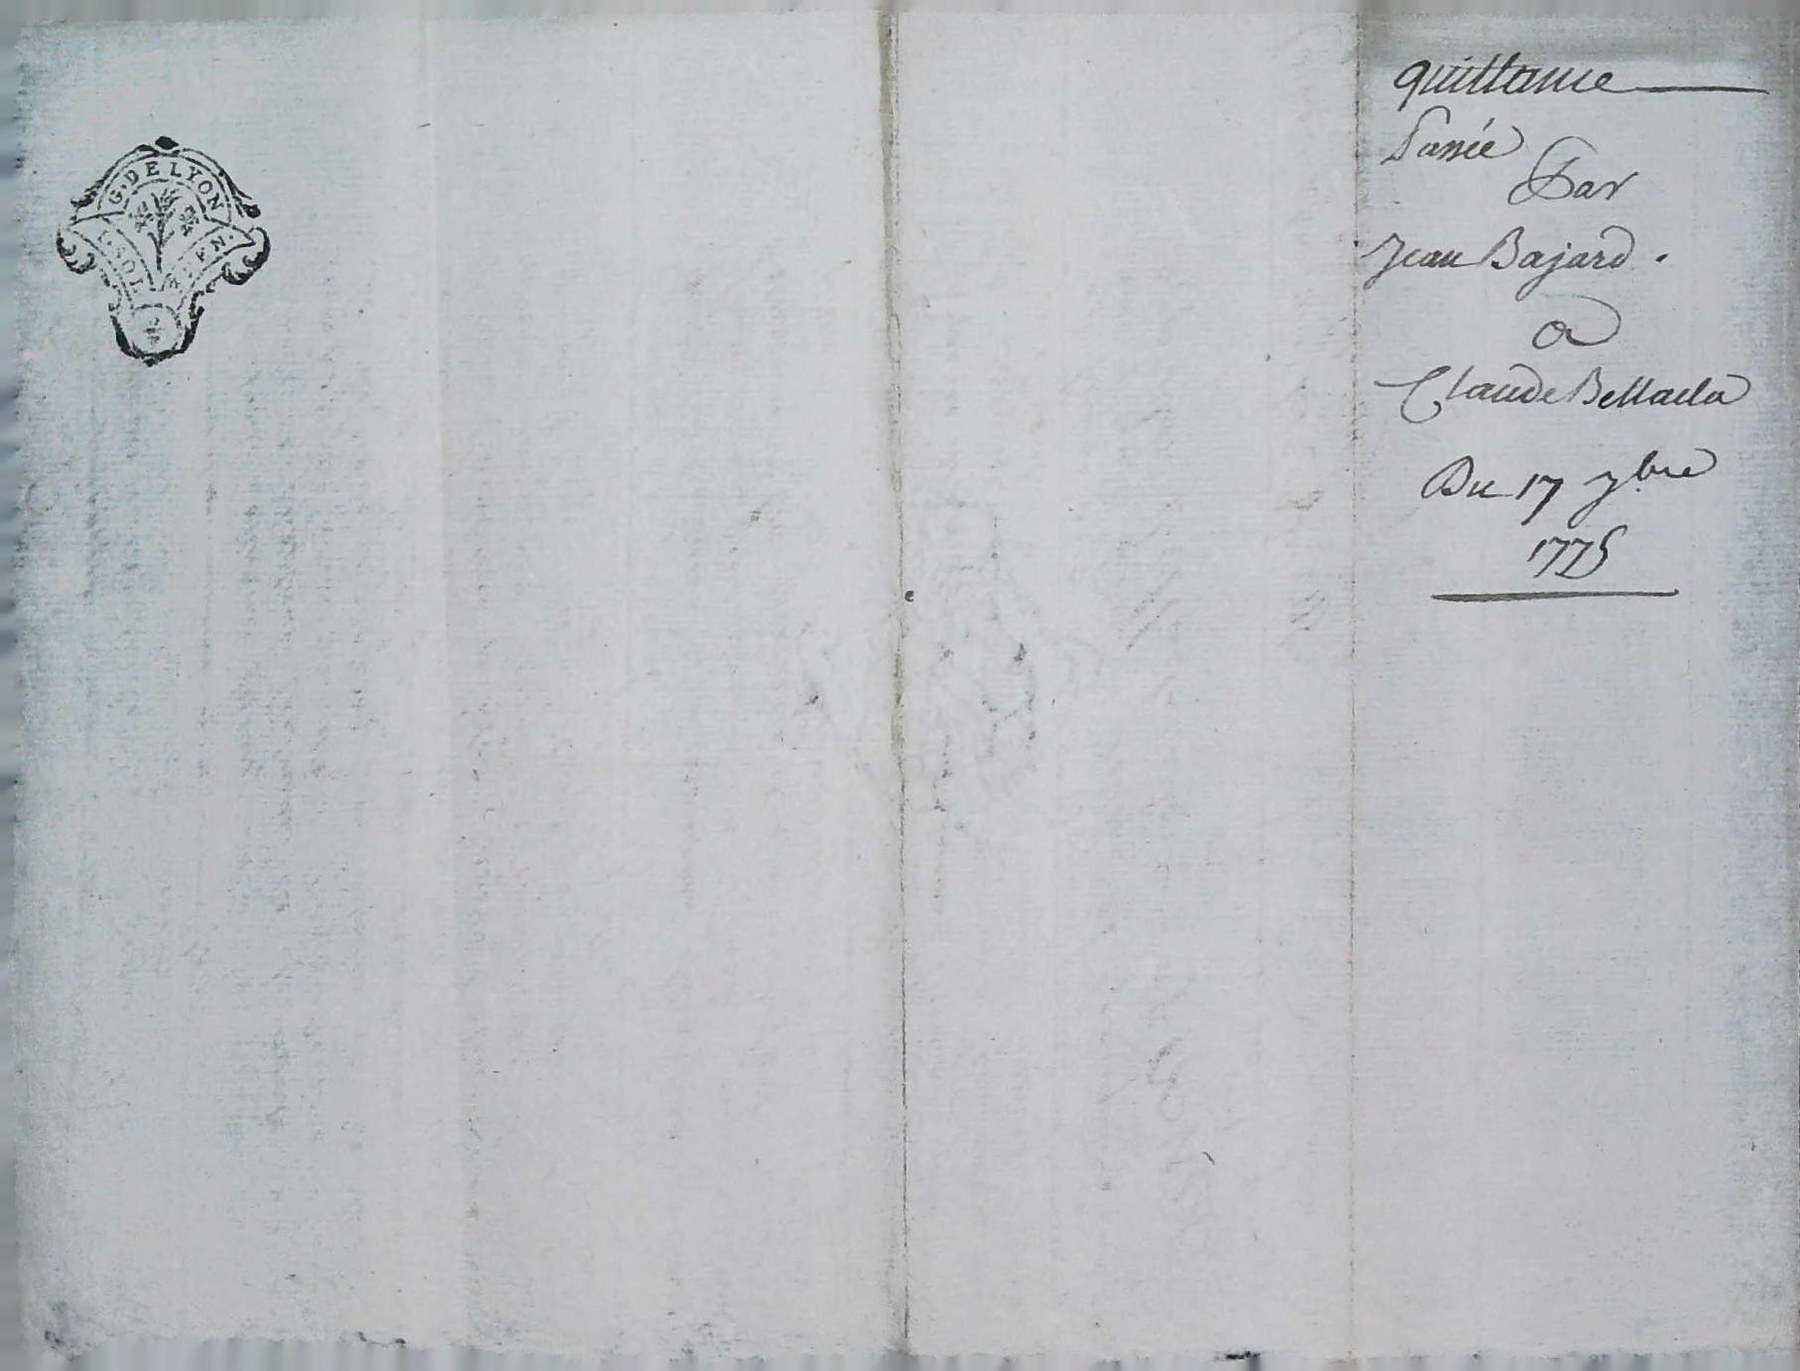 G. DE LYON
quittance
Passée
Par
Jean Bajard .
a
Claude
Du 17 7bre
1775